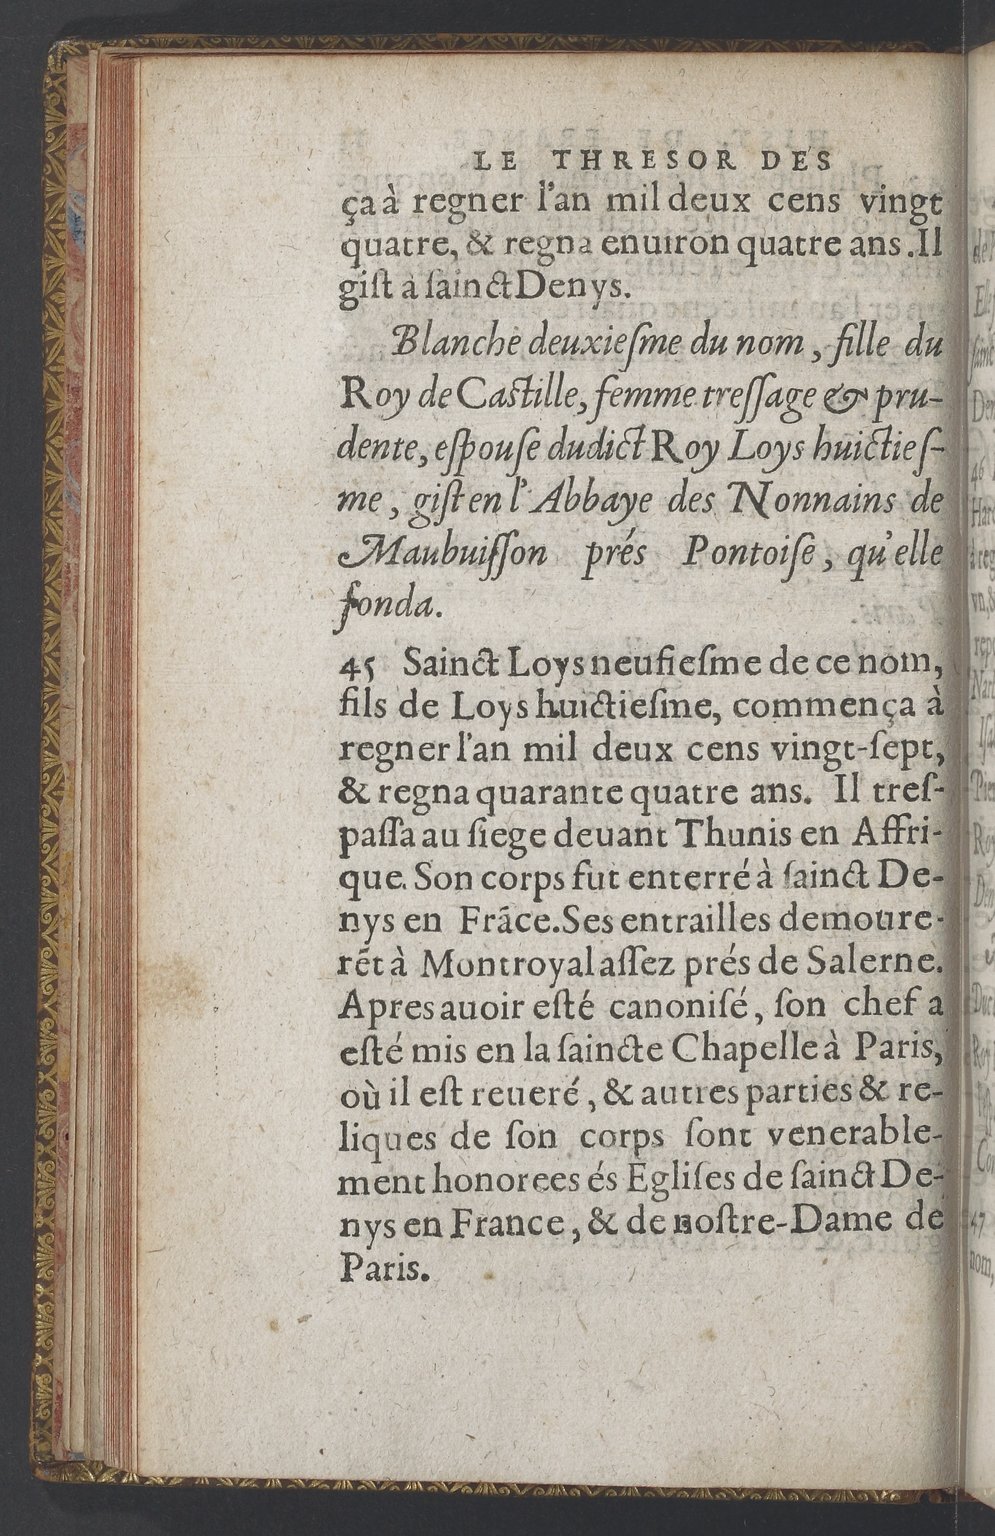 LE THRESOR DES
ça à regner l'an mil deux cens vingt
quatre, & regna enuiron quatre ans. Il
gist à sainct Denys.
Blanche deuxiesme du nom, fille du
Roy de Castille, femme tressage & pru-
dente, espouse dudict Roy Loys huicties-
me, gist en l'Abbaye des Nonnains de
Maubuisson prés Pontoise, qu'elle
fonda.
45 Sainct Loys neufiesme de ce nom,
fils de Loys huictiesme, commença à
regner l'an mil deux cens vingt-sept,
& regna quarante quatre ans. Il tres-
passa au siege deuant Thunis en Affri-
que. Son corps fut enterré à sainct De-
nys en Frãce. Ses entrailles demoure-
rẽt à Montroyal assez prés de Salerne.
Apres auoir esté canonisé, son chef a
esté mis en la saincte Chapelle à Paris,
où il est reueré, & autres parties & re-
liques de son corps sont venerable-
ment honorees és Eglises de sainct De-
nys en France, & de nostre-Dame de
Paris.